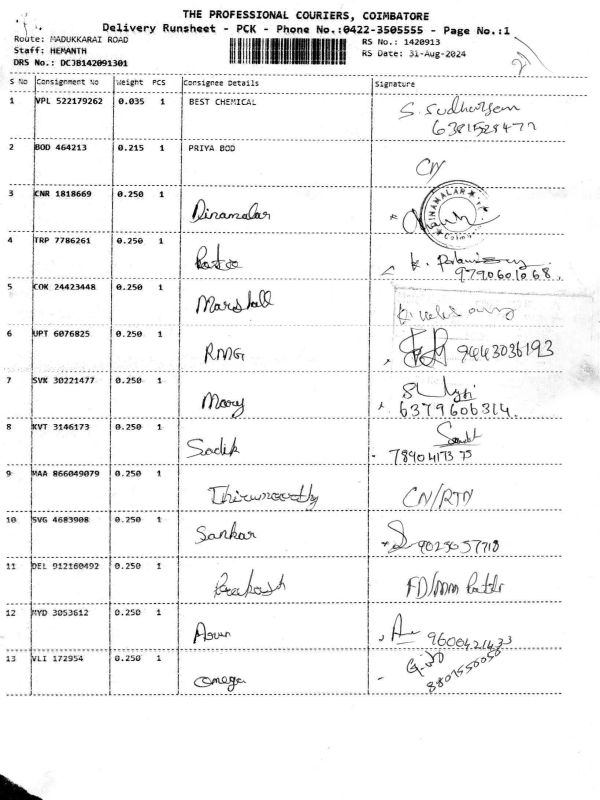 THE PROFESSIONAL COURIERS, COIMBATORE
Delivery Runsheet - PCK - Phone No.:0422-3505555 - Page No.:1
Route: MADUKKARAI ROAD RS No.: 1420913
Staff: HEMANTH RS Date: 31-Aug-2024
DRS No.: DCJB142091301
S No Consignment No Weight PCS Consignee Details Signature
1 VPL 522179262 0.035 1 BEST CHEMICAL S. Sudharsan
2 BOD 464213 0.215 1 PRIYA BOD
CN
3 CNR 1818669 0.250 1 Dinamalar
DINAMALAR
4 TRP 7786261 0.250 1 K.
9790601068.
5 COK 24423448 0.250 1 Marshall
6 UPT 6076825 0.250 1 RMG 9443036193
7 SVK 30221477 0.250 1 Mary
6379606314.
8 KVT 3146173 0.250 1 Sadik
7890417375
9 MAA 866049079 0.250 1 Thirumoorthy CN/RTN
10 SVG 4683908 0.250 1 Sankar 9025657718
11 DEL 912160492 0.250 1 Prakash
12 MYD 3053612 0.250 1 Arun 9600421433
13 VLI 172954 0.250 1 Omega
8807550050